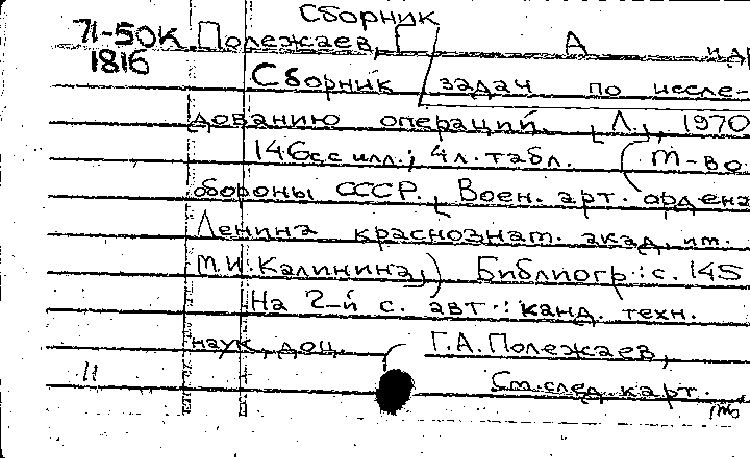 Сборник
71-50К Полежаев, Г А и др
1816
Сборник задач по иссле-
дованию операций. Л., 1970
146 с с илл.; 4 л. табл. (М-во
обороны СССР. Воен. арт. ордена
Ленина краснознам. акад. им.
М.И. Калинина,) Библиогр.: с. 145
На 2-й с. авт.: канд. техн.
наук, доц. Г.А. Полежаев,
11 См. след. карт.